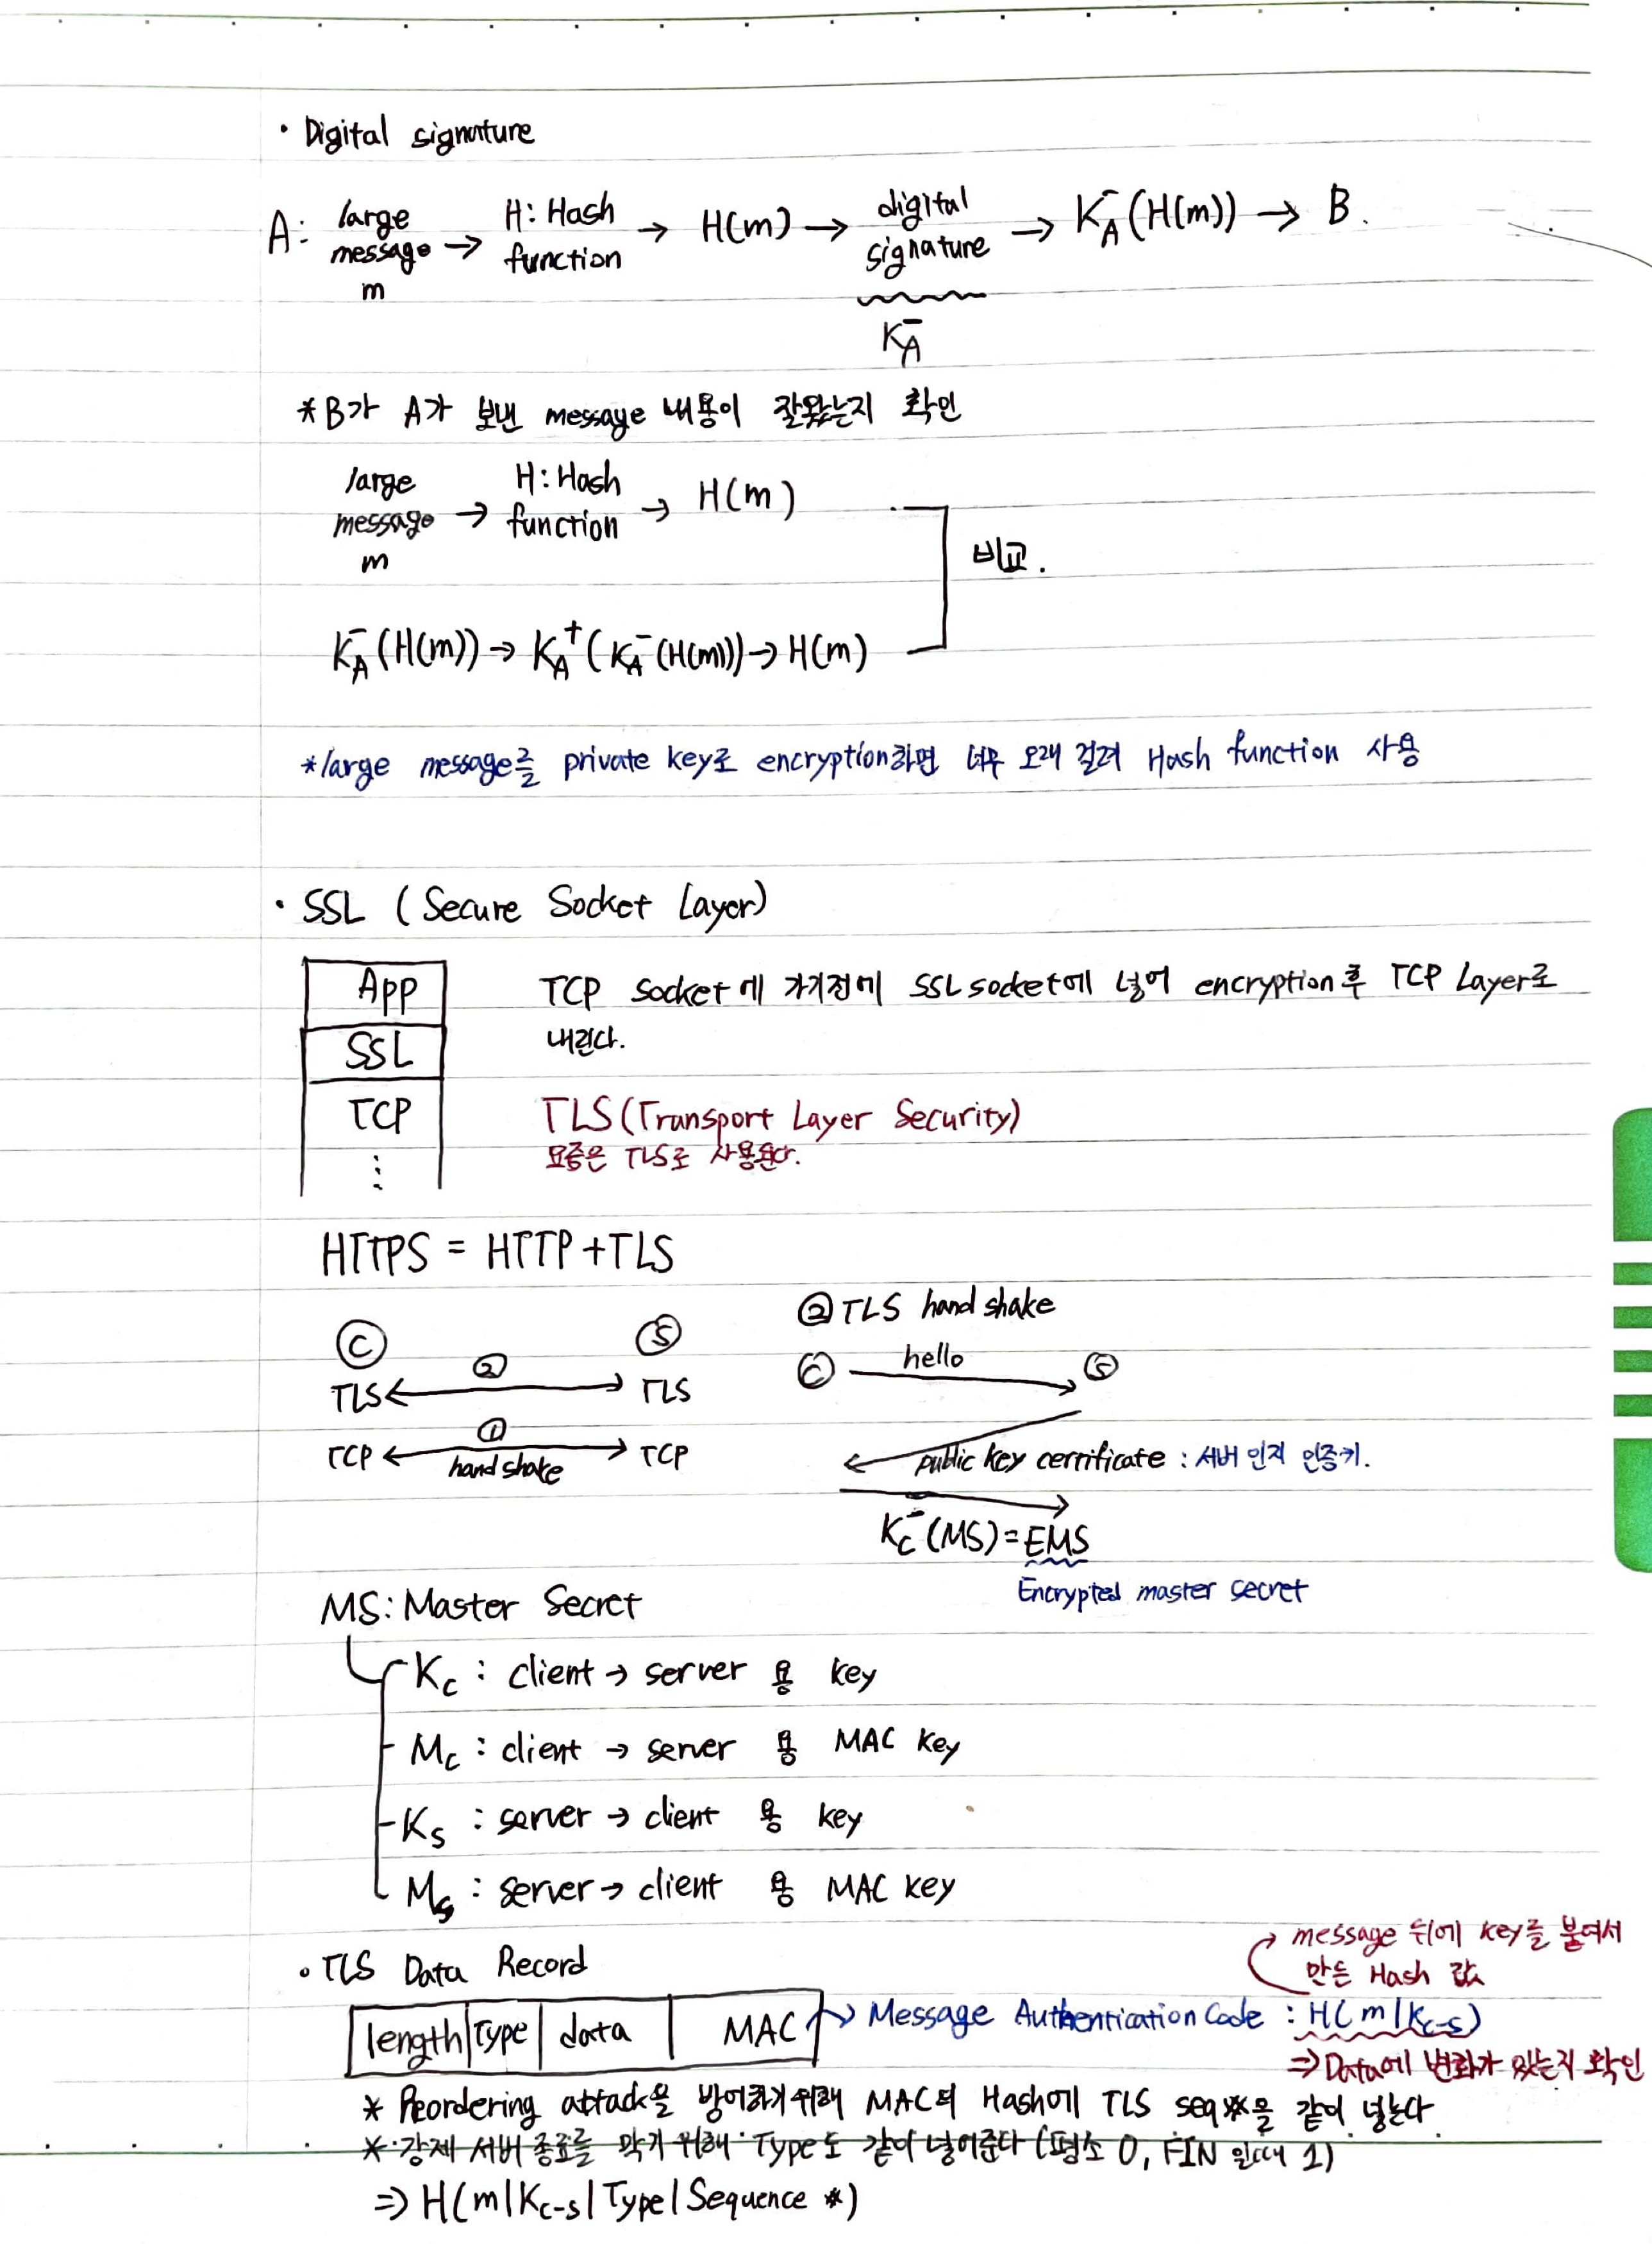 · Digital signature
A: large message m → H: Hash function → H(m) → digital signature → K_A^-(H(m)) → B.
K_A^-
*B가 A가 보낸 message 내용이 잘왔는지 확인
large message m → H: Hash function → H(m)
비교.
K_A^-(H(m)) → K_A^+(K_A^-(H(m))) → H(m)
*large message를 private key로 encryption하면 너무 오래 걸려 Hash function 사용
· SSL (Secure Socket Layer)
App
SSL
TCP
⋮
TCP socket에 가기전에 SSL socket에 넣어 encryption후 TCP Layer로
내린다.
TLS(Transport Layer Security)
요즘은 TLS로 사용된다.
HTTPS = HTTP+TLS
C S
TLS ← ② → TLS
TCP ← ① → TCP
handshake
② TLS handshake
C hello → S
← public key certificate : 서버 인지 인증키.
→
K_C^-(MS) = EMS
Encrypted master secret
MS: Master Secret
K_C : client → server 용 key
M_C : client → server 용 MAC key
K_S : server → client 용 key
M_S : server → client 용 MAC key
· TLS Data Record
message 뒤에 key를 붙여서
만든 Hash 값
length | Type | data | MAC → Message Authentication Code : H(m|K_C-S)
⇒ Data에 변화가 있는지 확인
* Reordering attack을 방어하기위해 MAC의 Hash에 TLS seq*을 같이 넣는다
* 강제 서버 종료를 막기 위해 Type도 같이 넣어준다 (평소 0, FIN 일때 1)
⇒ H(m|K_C-S|Type|Sequence *)